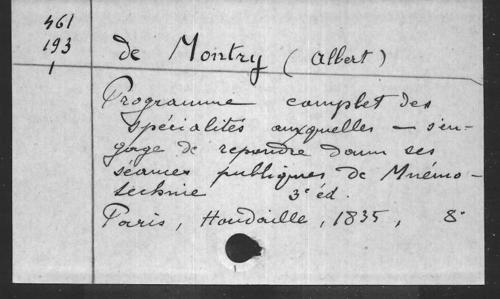 461
193
1
de Montry (Albert)
Programme complet des
spécialités auxquelles — s'en-
gage de repondre dans ses
séances publiques de Mnémo-
technie 3e éd.
Paris, Houdaille, 1835, 8°